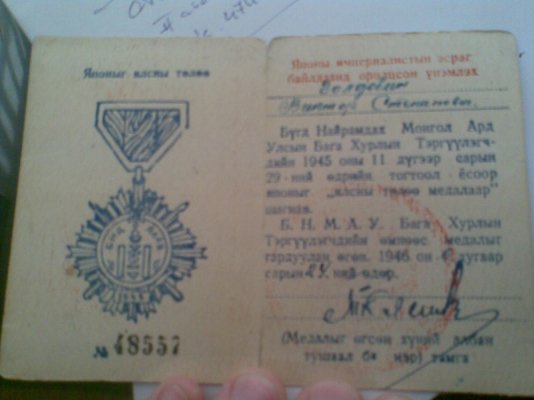 474
Японыг ялсны төлөө
БҮГД
АРДЫН
№ 48557
Японы империалистын эсрэг
байлдаанд оролцсон үнэмлэх
Виктор Степанович
Бүгд Найрамдах Монгол Ард
Улсын Бага Хурлын Тэргүүлэгч-
дийн 1945 оны 11 дүгээр сарын
29-ний өдрийн тогтоол ёсоор
японыг „ялсны төлөө медалаар"
шагнав.
Б. Н. М. А. У. Бага Хурлын
Тэргүүлэгчдийн өмнөөс медалыг
гардуулан өгөв. 1946 он дугаар
сарын ний өдөр.
(Медалыг өгсөн хүний албан
тушаал ба нэр) тамга